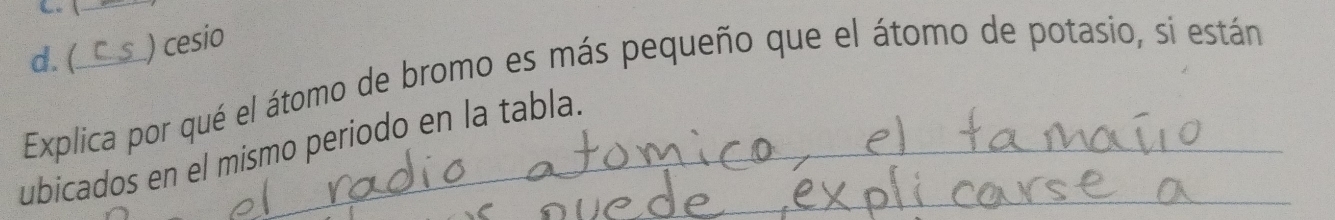 d. ( Cs ) cesio
Explica por qué el átomo de bromo es más pequeño que el átomo de potasio, si están
ubicados en el mismo periodo en la tabla.
el radio atomico, el tamaño
puede explicarse a